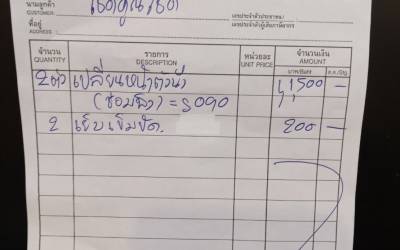 นามลูกค้า
CUSTOMER
เลขประจำตัวประชาชน/
เลขประจำตัวผู้เสียภาษีอากร
ที่อยู่
ADDRESS
จำนวน รายการ หน่วยละ จำนวนเงิน
QUANTITY DESCRIPTION UNIT PRICE AMOUNT
บาท/Baht ส.ต./Stg.
2 เปลี่ยนหน้า 1500 —
2 เย็บเข็มขัด. 200 —